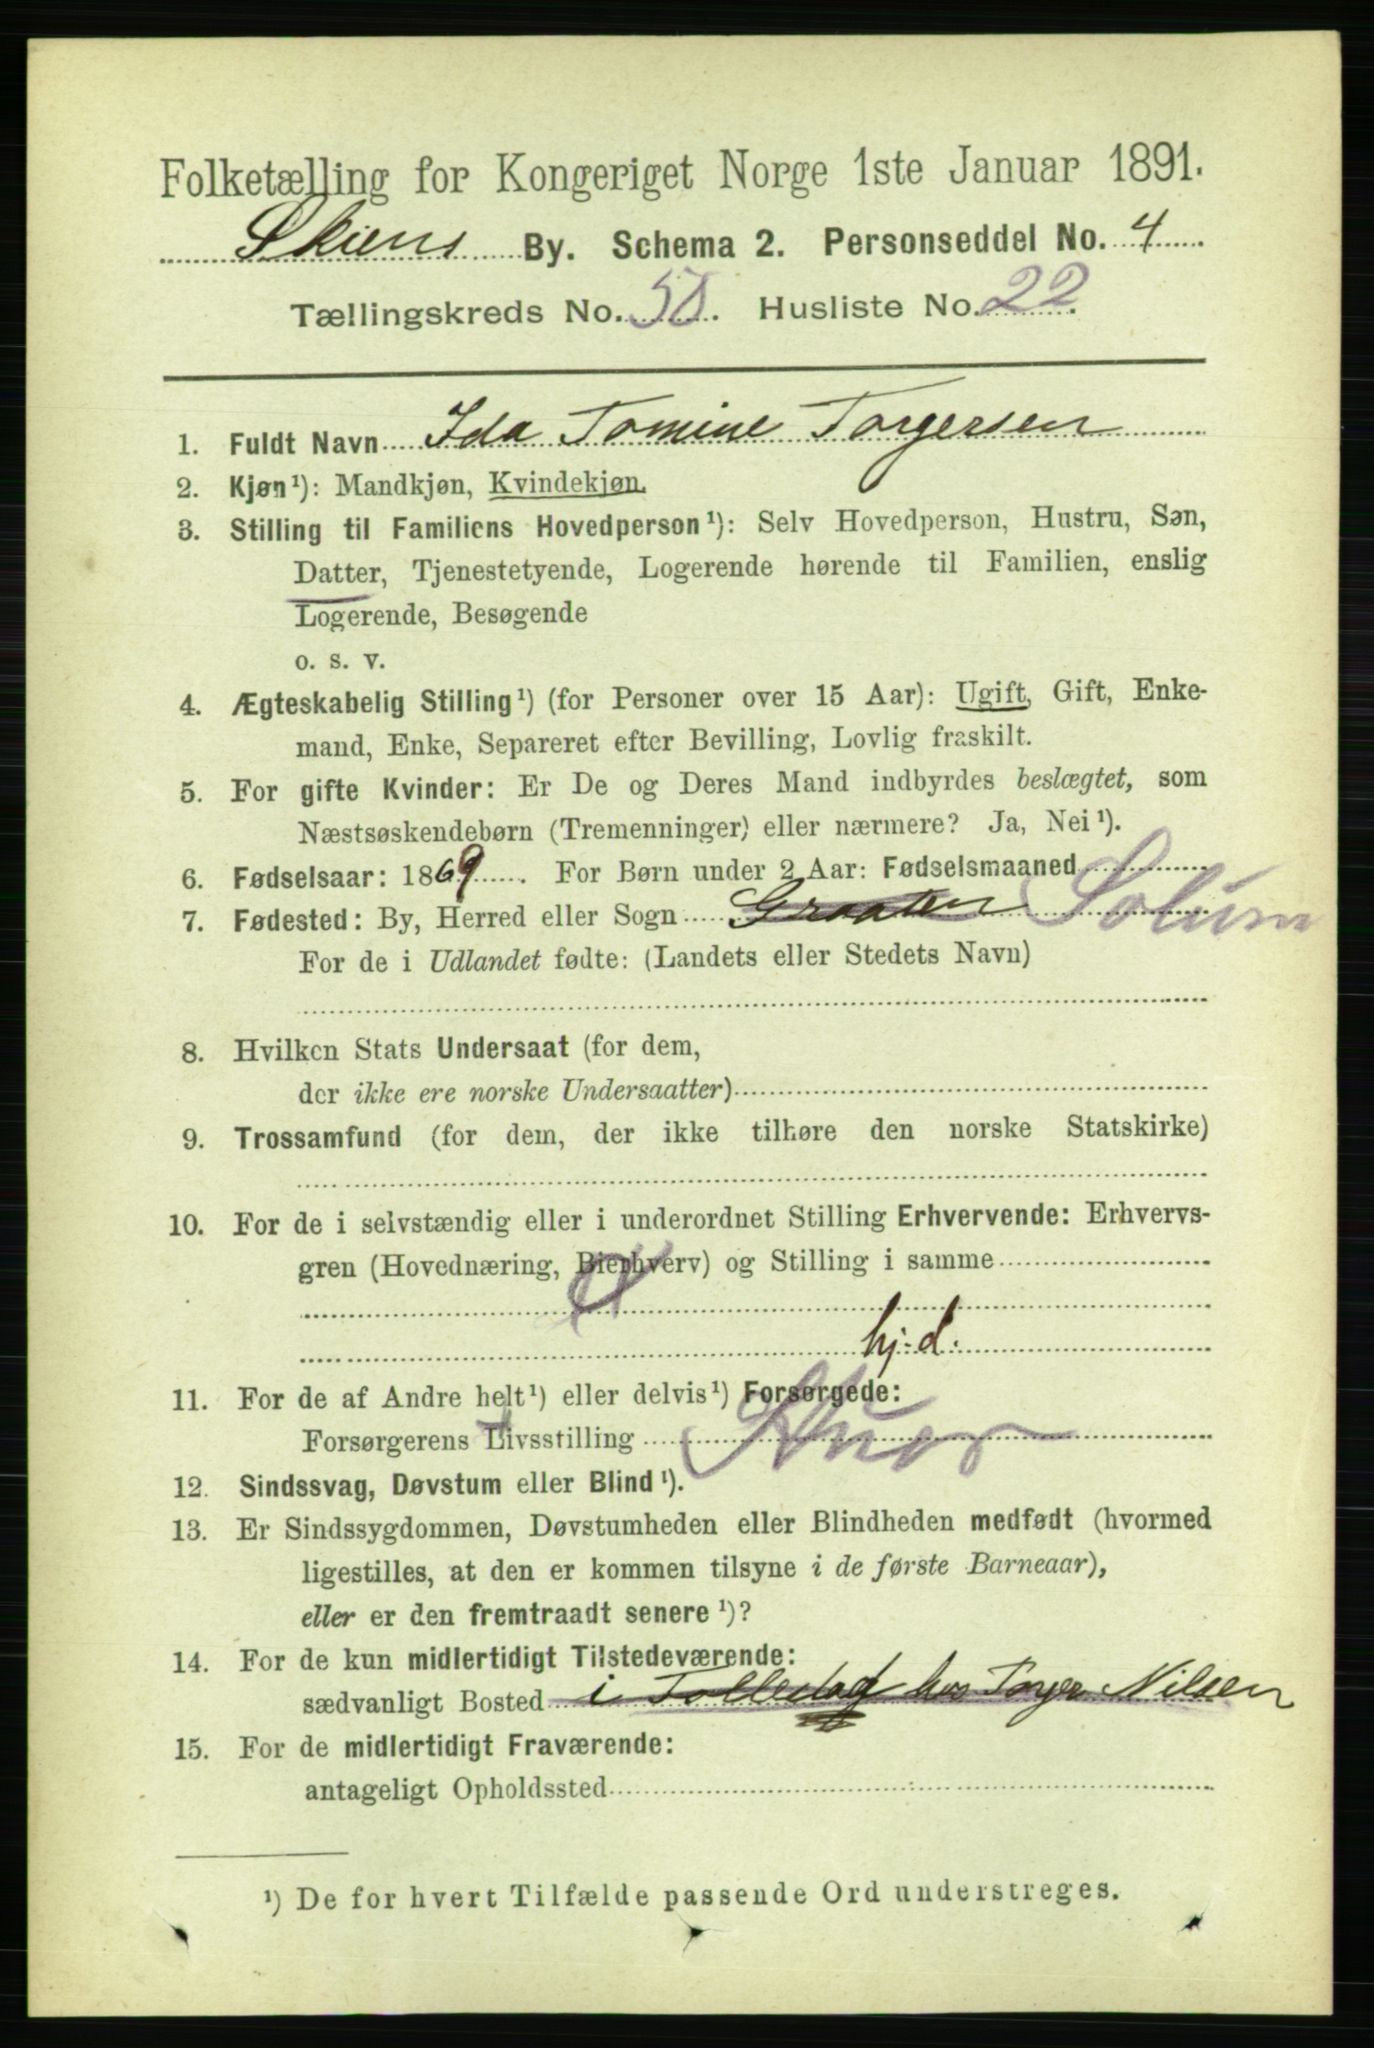 Folketælling for Kongeriget Norge 1ste Januar 1891.
Skiens By. Schema 2. Personseddel No. 4
Tællingskreds No. 50. Husliste No. 22.
1. Fuldt Navn Ida Tomine Torgersen
2. Kjøn¹): Mandkjøn, Kvindekjøn.
3. Stilling til Familiens Hovedperson¹): Selv Hovedperson, Hustru, Søn,
Datter, Tjenestetyende, Logerende hørende til Familien, enslig
Logerende, Besøgende
o. s. v.
4. Ægteskabelig Stilling¹) (for Personer over 15 Aar): Ugift, Gift, Enke-
mand, Enke, Separeret efter Bevilling, Lovlig fraskilt.
5. For gifte Kvinder: Er De og Deres Mand indbyrdes beslægtet, som
Næstsøskendebørn (Tremenninger) eller nærmere? Ja, Nei¹).
6. Fødselsaar: 1869. For Børn under 2 Aar: Fødselsmaaned
7. Fødested: By, Herred eller Sogn Graaten Solum
For de i Udlandet fødte: (Landets eller Stedets Navn)
8. Hvilken Stats Undersaat (for dem,
der ikke ere norske Undersaatter)
9. Trossamfund (for dem, der ikke tilhøre den norske Statskirke)
10. For de i selvstændig eller i underordnet Stilling Erhvervende: Erhvervs-
gren (Hovednæring, Bierhverv) og Stilling i samme
hj. d.
11. For de af Andre helt¹) eller delvis¹) Forsørgede:
Forsørgerens Livsstilling
12. Sindssvag, Døvstum eller Blind¹).
13. Er Sindssygdommen, Døvstumheden eller Blindheden medfødt (hvormed
ligestilles, at den er kommen tilsyne i de første Barneaar),
eller er den fremtraadt senere¹)?
14. For de kun midlertidigt Tilstedeværende:
sædvanligt Bosted i hos Torger Nilsen
15. For de midlertidigt Fraværende:
antageligt Opholdssted
¹) De for hvert Tilfælde passende Ord understreges.